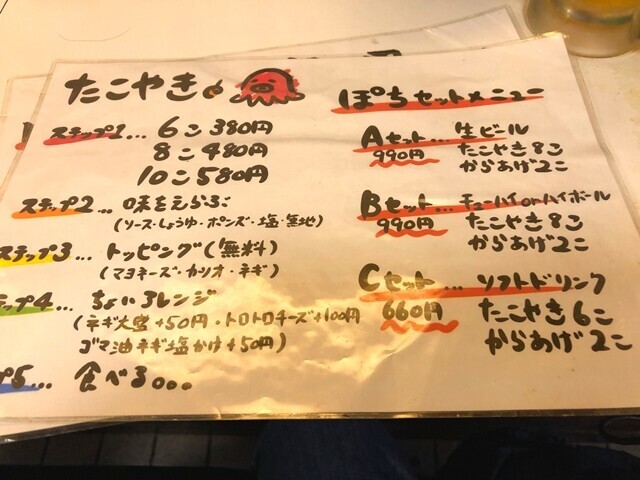 たこやき
ステップ1... 6こ 380円
8こ 480円
10こ 580円
ステップ2... 味をえらぶ
(ソース・しょうゆ・ポンズ・塩・無地)
ステップ3... トッピング(無料)
(マヨネーズ・カツオ・ネギ)
ップ4... ちょいアレンジ
(ネギ大盛+50円・トロトロチーズ+100円
ゴマ油ネギ塩かけ+50円)
プ5... 食べる。。。
ぽちセットメニュー
Aセット... 生ビール
990円 たこやき8こ
からあげ2こ
Bセット... チューハイorハイボール
990円 たこやき8こ
からあげ2こ
Cセット... ソフトドリンク
660円 たこやき6こ
からあげ2こ